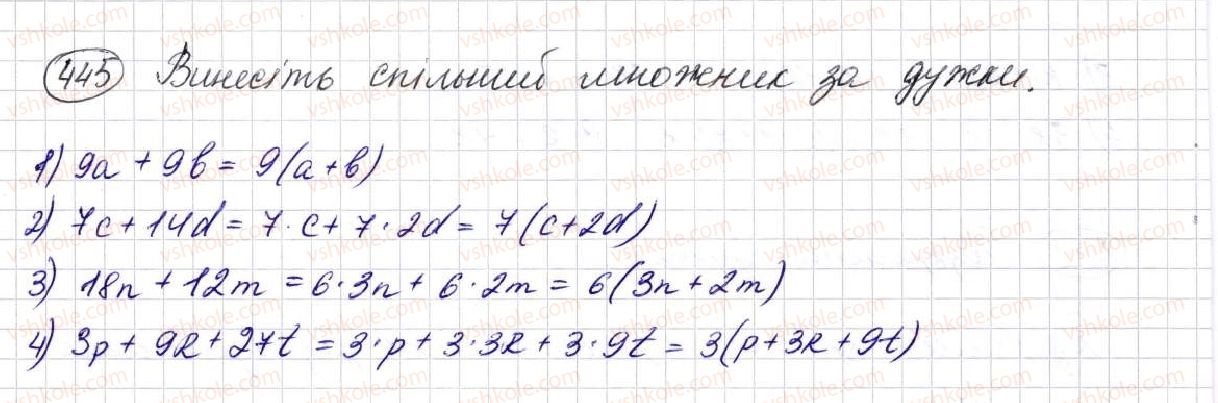 445 Винесіть спільний множник за дужки.
1) 9a + 9b = 9(a+b)
2) 7c + 14d = 7 · c + 7 · 2d = 7(c+2d)
3) 18n + 12m = 6 · 3n + 6 · 2m = 6(3n + 2m)
4) 3p + 9k + 27t = 3 · p + 3 · 3k + 3 · 9t = 3(p+3k+9t)